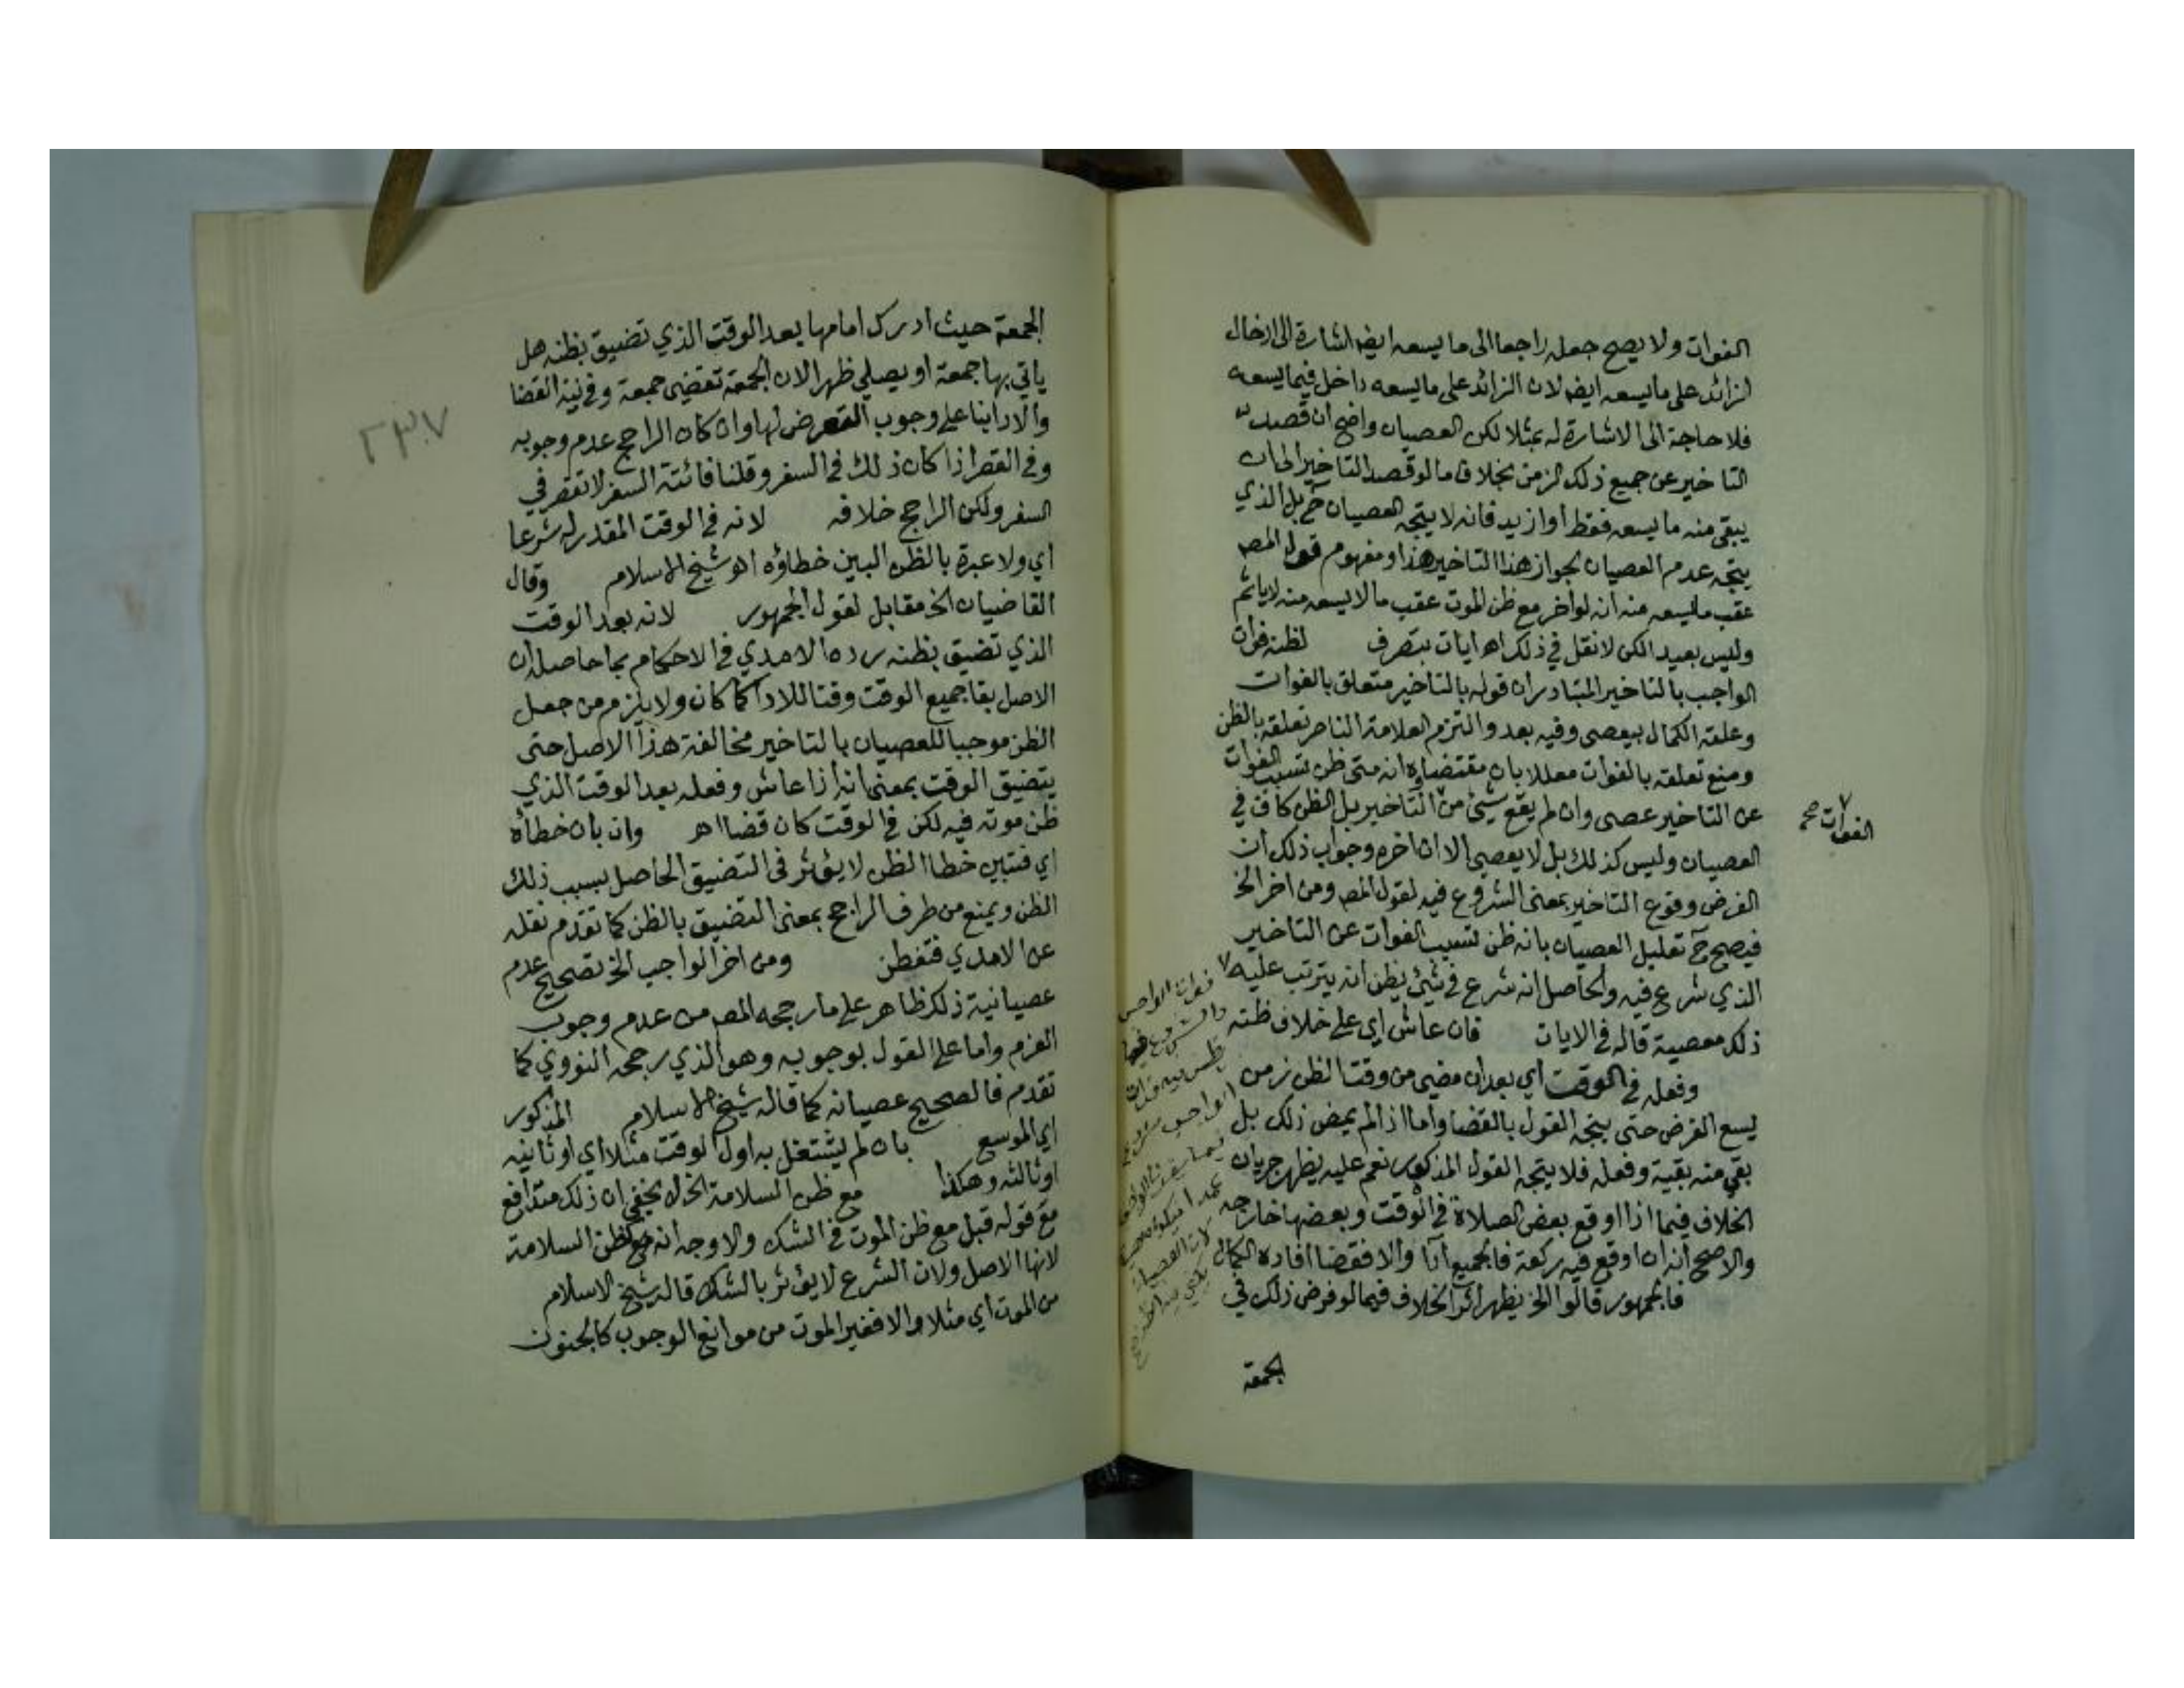 الفوات ولا يصح جعله راجعا الى ما يسعه ايضا اشارة الى ادخال
الزائد على ما يسعه ايضا لان الزائد على ما يسعه داخل فيما يسعه
فلا حاجة الى الاشارة له بمثلا لكن العصيان واضح ان قصد
التاخير عن جميع ذلك الزمن بخلاف ما لو قصد التاخير الى ان
يبقى منه ما يسعه فقط او ازيد فانه لا يتجه العصيان ح بل الذي
يتجه عدم العصيان لجواز هذا التاخير هذا ومفهوم قول المص
عقب ما يسعه منه انه لو اخر مع ظن الموت عقب ما لا يسعه منه لا ياثم
وليس بعيد الكن لا نقل في ذلك اهـ ايات بتصرف لظنه فوات
الواجب بالتاخير المتبادر ان قوله بالتاخير متعلق بالفوات
وعلقه الكمال بيعصى وفيه بعد والتزم العلامة الناصر تعلقه بالظن
ومنع تعلقه بالفوات معللا بان مقتضاه انه متى ظن تسبب الفوات
عن التاخير عصى وان لم يقع شيئ من التاخير بل الظن كاف في
العصيان وليس كذلك بل لا يعصى الا ان اخره وجواب ذلك ان
الفرض وقوع التاخير بمعنى الشروع فيه لقول المص ومن اخر الخ
فيصح ح تعليل العصيان بانه ظن تسبب الفوات عن التاخير
الذي شرع فيه والحاصل انه شرع في شيئ يظن انه يترتب عليه
ذلك معصية قاله في الايات فان عاش اي على خلاف ظنه
وفعله في الوقت اي بعد ان مضى من وقت الظن زمن
يسع الفرض حتى يتجه القول بالقضا واما اذا لم يمض ذلك بل
بقي منه بقية وفعله فلا يتجه القول المذكور نعم عليه يظهر جريان
الخلاف فيما اذا اوقع بعض الصلاة في الوقت وبعضها خارجه
والاصح انه ان اوقع فيه ركعة فالجميع ادا والا فقضا افاده الكمال
فالجمهور قالوا الخ يظهر اثر الخلاف فيما لو فرض ذلك في
الجمعة
الفوات صح
فوات الواجب
الجمعة حيث ادرك امامها بعد الوقت الذي تضيق بظنه هل
ياتي بها جمعة او يصلي ظهرا لان الجمعة تقضى جمعة وفي نية القضا
والادا بنا على وجوب التعرض لها وان كان الراجح عدم وجوبه
وفي القصر اذا كان ذلك في السفر وقلنا فائتة السفر لا تقصر في
السفر ولكن الراجح خلافه لانه في الوقت المقدر له شرعا
اي ولا عبرة بالظن البين خطاؤه اهـ شيخ الاسلام وقال
القاضيان الخ مقابل لقول الجمهور لانه بعد الوقت
الذي تضيق بظنه رده الامدي في الاحكام بما حاصله ان
الاصل بقا جميع الوقت وقتا للادا كما كان ولا يلزم من جعل
الظن موجبا للعصيان بالتاخير مخالفة هذا الاصل حتى
يتضيق الوقت بمعنى انه اذا عاش وفعله بعد الوقت الذي
ظن موته فيه لكن في الوقت كان قضا اهـ وان بان خطأه
اي فتبين خطا الظن لا يؤثر في التضيق الحاصل بسبب ذلك
الظن ويمنع من طرف الراجح بمعنى التضيق بالظن كما تقدم نقله
عن الامدي فتفطن ومن اخر الواجب الخ تصحيح عدم
عصيانية ذلك ظاهر على ما رجحه المص من عدم وجوب
العزم واما على القول بوجوبه وهو الذي رجحه النووي كما
تقدم فالصحيح عصيانه كما قاله شيخ الاسلام المذكور
اي الموسع بان لم يشتغل به اول الوقت مثلا اي او ثانيه
او ثالثه وهكذا مع ظن السلامة الخ لا يخفى ان ذلك متدافع
مع قوله قبل مع ظن الموت في الشك والاوجه انه كظن السلامة
لانها الاصل ولان الشرع لا يؤثر بالشك قاله شيخ الاسلام
من الموت اي مثلا والا فغير الموت من موانع الوجوب كالجنون
٢٣٧